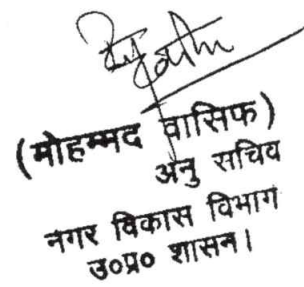 (मोहम्मद वासिफ)
अनु सचिव
नगर विकास विभाग
उ०प्र० शासन।